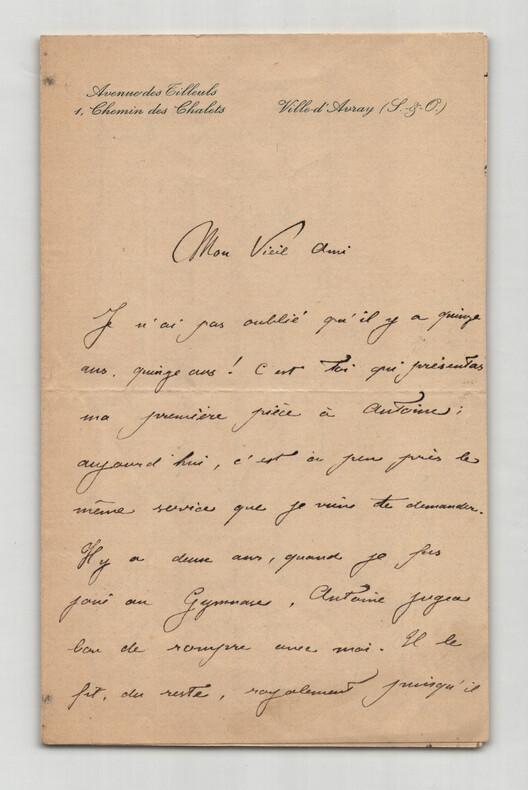 Avenue des Tilleuls
1, Chemin des Chalets
Ville-d'Avray (S.-&-O.)
Mon Vieil Ami
Je n'ai pas oublié qu'il y a quinze
ans, quinze ans ! C'est toi qui présentas
ma première pièce à Antoine ;
aujourd'hui, c'est à peu près le
même service que je viens te demander.
Il y a deux ans, quand je fus
joué au Gymnase, Antoine jugea
bon de rompre avec moi. Il le
fit, du reste, royalement puisqu'il